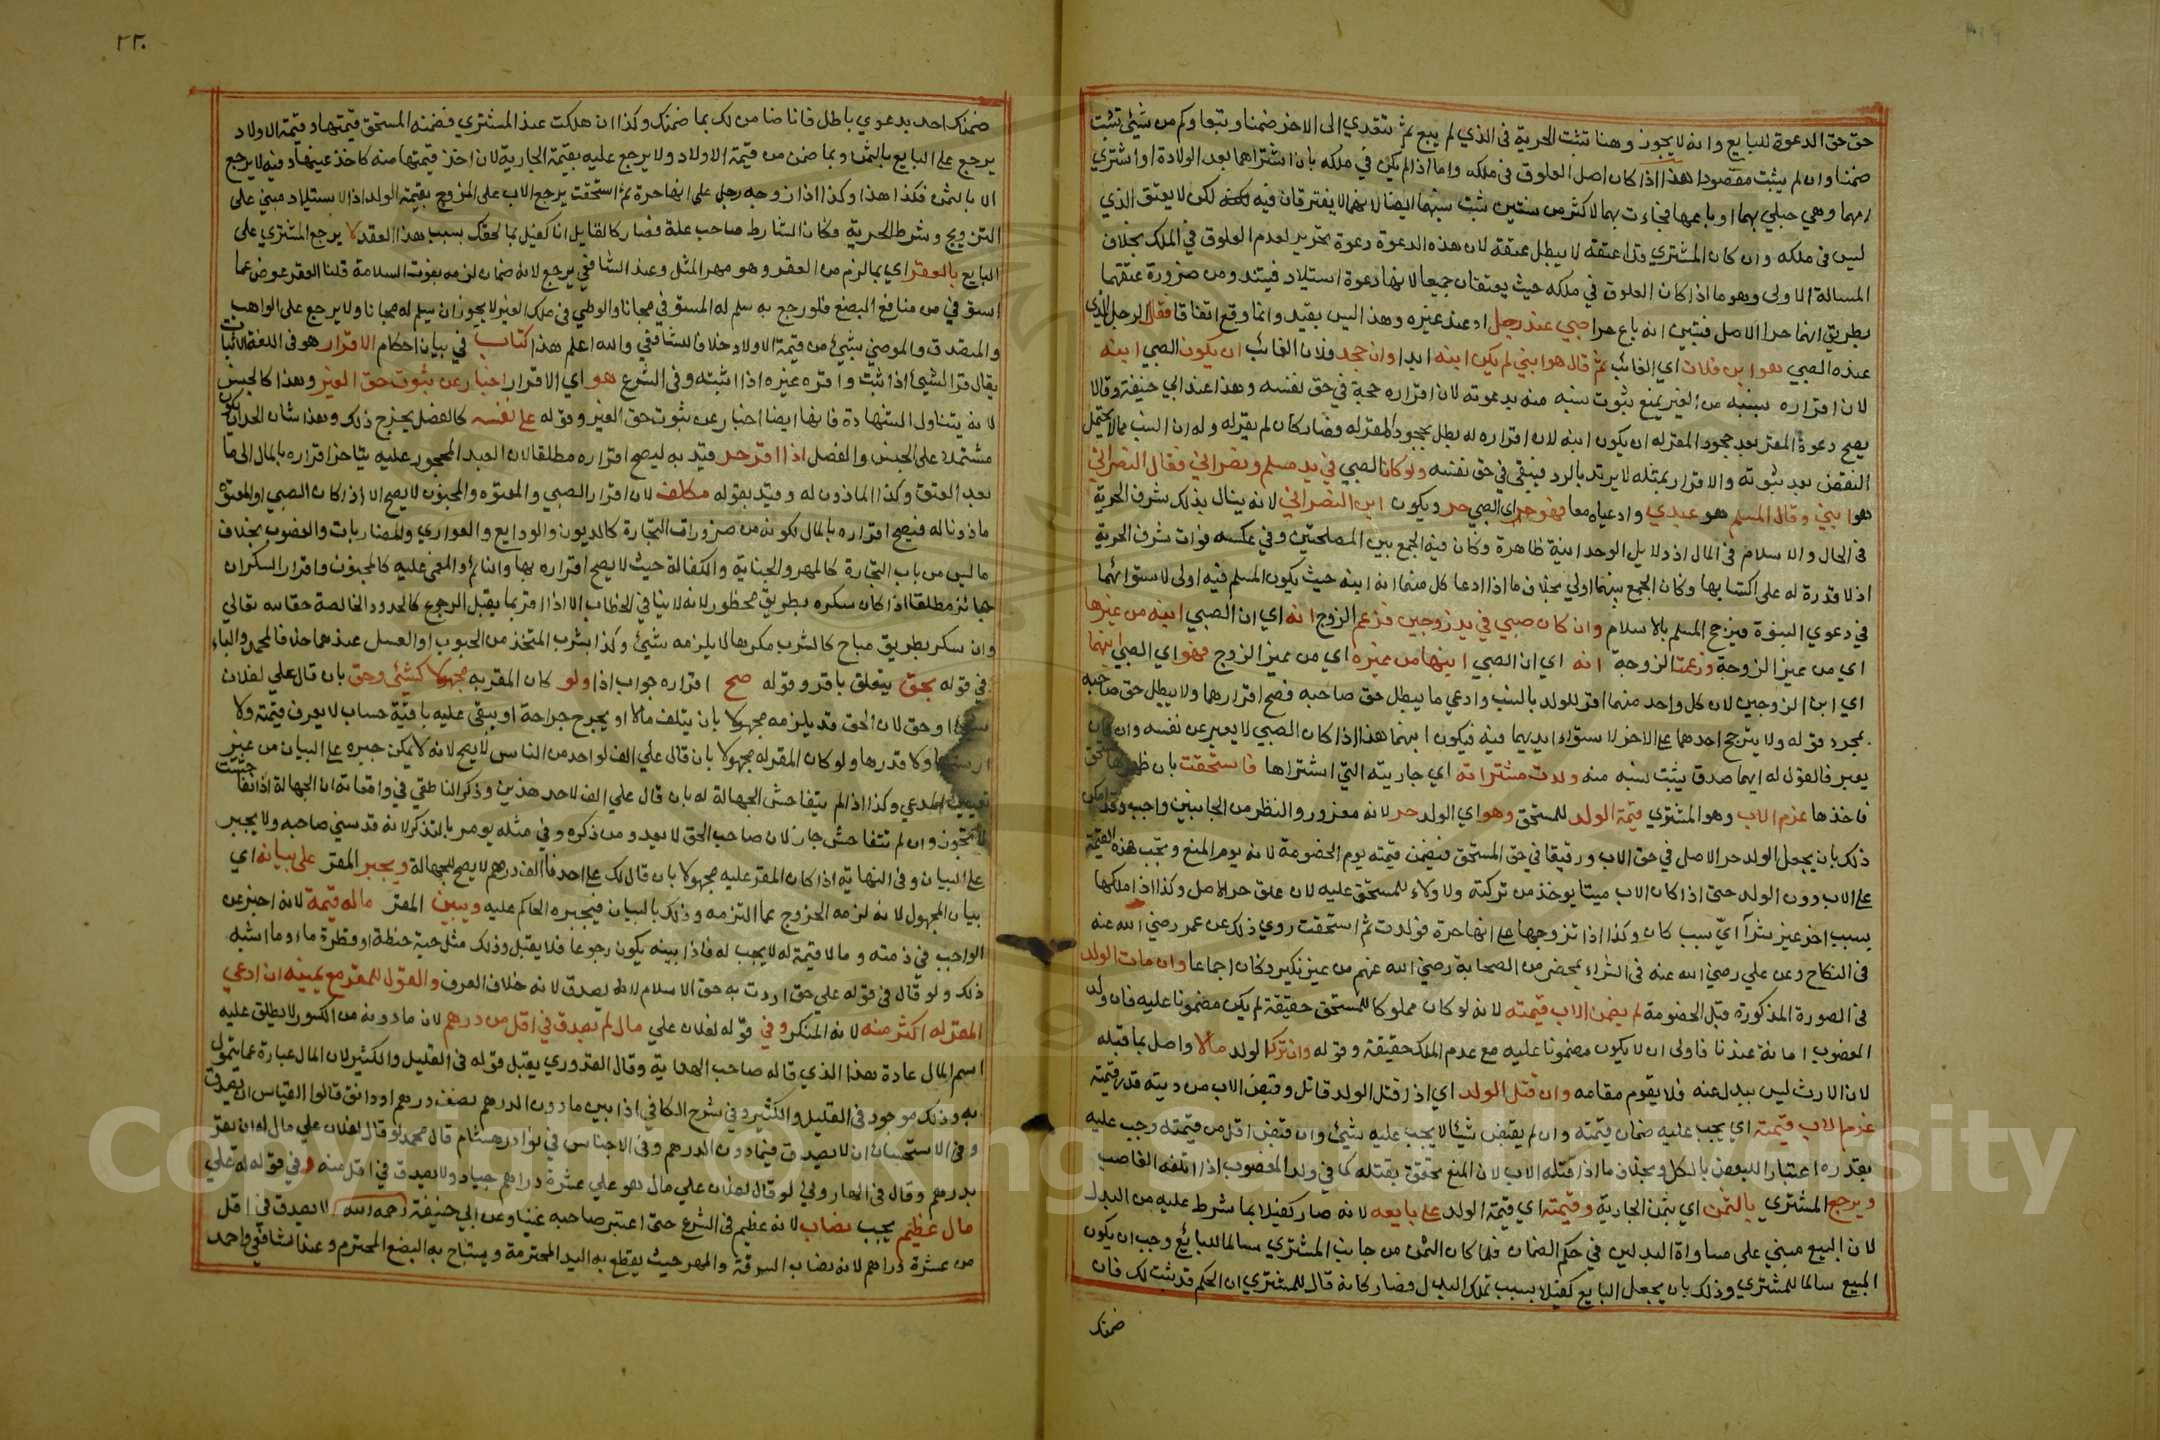 حق حق الدعوة للبايع وانه لا يجوز وهنا تثبت الحرية في الذي لم يبع ثم تتعدي الى الاخر ضمنا وتبعا وكم من شيئ تثبت
ضمنا وان لم يثبت مقصودا هذا اذا كان اصل العلوق في ملكه واما اذا لم يكن في ملكه بان اشتراهما بعد الولادة او اشتري
امهما وهي حبلي بهما او باعها فجاءت بهما لاكثر من سنتين ثبت نسبهما ايضا لانهما لا يفترقان فيه لكن لا يعتق الذي
ليس في ملكه وان كان المشتري قد اعتقه لا يبطل عتقه لان هذه الدعوة دعوة تحرير لعدم العلوق في الملك بخلاف
المسالة الاولى وهو ما اذا كان العلوق في ملكه حيث يعتقان جميعا لانها دعوة استيلاد فيستند ومن ضرورة عتقهما
بطريق انهما حرا الاصل فتبين انه باع حرا صبي عند رجل او عند غيره وهذا ليس بقيد وانما وقع اتفاقا فقال الرجل الذي
عنده الصبي هو ابن فلان اي الغائب ثم قال هو ابني لم يكن ابنه ابدا وان جحد فلان الغائب ان يكون الصبي ابنه
لان اقراره بنسبه من الغير يمنع ثبوت نسبه منه بدعوته لان اقراره حجة في حق نفسه وهذا عند ابي حنيفة وقالا
يصح دعوة المقر بعد جحود المقر له ان يكون ابنه لان اقراره له بطل بجحود المقر له وصار كان لم يقر له وله ان النسب مما لا يحتمل
النقض بعد ثبوته والاقرار بمثله لا يرتد بالرد فيبقي في حق نفسه ولو كان الصبي في يد مسلم ونصراني فقال النصراني
هو ابني وقال المسلم هو عبدي وادعياه معا فهو حر اي الصبي حر ويكون ابن النصراني لانه ينال بذلك شرف الحرية
في الحال والاسلام في المال اذ دلايل الوحدانية ظاهرة وكان فيه الجمع بين المصلحتين وفي عكسه فوات شرف الحرية
اذ لا قدرة له على اكتسابها وكان الجمع بينهما اولي بخلاف ما اذا ادعا كل منهما انه ابنه حيث يكون المسلم فيه اولى لاستوائهما
في دعوي البنوة فيرجح المسلم بالاسلام وان كان صبي في يد زوجين فزعم الزوج انه اي ان الصبي ابنه من غيرها
اي من غير الزوجة وزعمت الزوجة انه اي ان الصبي ابنها من غيره اي من غير الزوج فهو اي الصبي ابنهما
اي ابن الزوجين لان كل واحد منهما اقر للولد بالنسب وادعي ما يبطل حق صاحبه فصح اقرارهما ولا يبطل حق صاحبه
بمجرد قوله ولا يترجح احدهما على الاخر لاستواء ايديهما فيه فيكون ابنهما هذا اذا كان الصبي لا يعبر عن نفسه وان كان
يعبر فالقول له ايهما صدق يثبت نسبه منه ولدت مشتراته اي جاريته التي اشتراها فاستحقت بان ظهر
فاخذها غرم الاب وهو المشتري قيمة الولد للمستحق وهو اي الولد حر لانه مغرور والنظر من الجانبين واجب وقد امكن
ذلك بان يجعل الولد حر الاصل في حق الاب ورقيقا في حق المستحق فيضمن قيمته يوم الخصومة لانه يوم المنع وتجب هذه القيمة
على الاب دون الولد حتى اذا كان الاب ميتا يوخذ من تركته ولا ولاء للمستحق عليه لان علق حر الاصل وكذا اذا ملكها
بسبب اخر غير شرآ اي سبب كان وكذا اذا تزوجها على انها حرة فولدت ثم استحقت روي ذلك عن عمر رضي الله عنه
في النكاح وعن علي رضي الله عنه في الشراء بمحضر من الصحابة رضي الله عنهم من غير نكير فكان اجماعا وان مات الولد
في الصورة المذكورة قبل الخصومة لم يضمن الاب قيمته لانه لو كان مملوكا للمستحق حقيقة لم يكن مضمونا عليه فان ولد
المغصوب امانة عندنا فاولى ان لا يكون مضمونا عليه مع عدم الملك حقيقة وقوله وان ترك الولد مالا واصل بما قبله
لان الارث ليس ببدل عنه فلا يقوم مقامه وان قتل الولد اي اذا قتل الولد قاتل وقبض الاب من ديته قدر قيمته
غرم الاب قيمته اي يجب عليه ضمان قيمته وان لم يقبض شيئا لا يجب عليه شيئ وان قبض اقل من قيمته وجب عليه
بقدره اعتبارا للبعض بالكل وبخلاف ما اذا قتله الاب لان المنع تحقق بقتله كما في ولد المغصوب اذا اتلفه الغاصب
ويرجع المشتري بالثمن اي بثمن الجارية وقيمته اي قيمة الولد على بايعه لانه صار كفيلا بما شرط عليه من البدل
لان البيع مبني على مساواة البدلين في حكم الضمان فلما كان الثمن من جانب المشتري سالما للبائع وجب ان يكون
المبيع سالما للمشتري وذلك بان يجعل البايع كفيلا بسبب تملك البدل فصار كانه قال للمشتري ان الحكم قد ثبت لك فان
ضمنك
٢٢٠
ضمنك احد بدعوي باطل فانا ضامن لك بما ضمنك وكذا ان هلكت عند المشتري فضمنه المستحق قيمتها وقيمة الاولاد
يرجع على البايع بالثمن وبما ضمن من قيمة الاولاد ولا يرجع عليه بقيمة الجارية لان اخذ قيمتها منه كاخذ عينها وفيه لا يرجع
الا بالثمن فكذا هذا وكذا اذا زوجه رجل على انها حرة ثم استحقت يرجع الاب على المزوج بقيمة الولد اذ الاستيلاد مبني على
التزويج وشرط الحرية فكان الشارط صاحب علة فصار كالقايل انا كفيل بما لحقك بسبب هذا العقد لا يرجع المشتري على
البايع بالعقر اي بما لزم من العقر وهو مهر المثل وعند الشافعي يرجع لانه ضمان لزمه بفوت السلامة قلنا العقر عوض عما
استوفي من منافع البضع فلو رجع به سلم له المستوفي مجانا والوطي في ملك الغير لا يجوز ان يسلم له مجانا ولا يرجع على الواهب
والمتصدق والموصي بشيئ من قيمة الاولاد خلافا للشافعي والله اعلم هذا كتاب في بيان احكام الاقرار هو في اللغة الاثبات
يقال قر الشيئ اذا ثبت واقره غيره اذا اثبته وفي الشرع هو اي الاقرار اخبار عن ثبوت حق الغير وهذا كالجنس
لانه يتناول الشهادة فانها ايضا اخبار عن ثبوت حق الغير وقوله على نفسه كالفصل يخرج ذلك وهذا شان الحد ان يكون
مشتملا على الجنس والفصل اذا اقر حر قيد به ليصح اقراره مطلقا لان العبد المحجور عليه يتاخر اقراره بالمال الى ما
بعد العتق وكذا الماذون له وقيد بقوله مكلف لان اقرار الصبي والمعتوه والمجنون لا يصح الا اذا كان الصبي او المعتوه
ماذونا له فيصح اقراره بالمال لكونه من ضرورات التجارة كالديون والودايع والعواري والمضاربات والغصوب بخلاف
ما ليس من باب التجارة كالمهر والجناية والكفالة حيث لا يصح اقراره بها والنائم والمغمى عليه كالمجنون واقرار السكران
جائز مطلقا اذا كان سكره بطريق محظور لانه لا ينافي الخطاب الا اذا اقر بما يقبل الرجوع كالحدود الخالصة حقا لله تعالي
وان سكر بطريق مباح كالشرب مكرها لا يلزمه شيئ وكذا بشرب المتخذ من الحبوب او العسل عندهما خلافا لمحمد والباء
في قوله بحق يتعلق باقر وقوله صح اقراره جواب اذا ولو كان المقر به مجهولا كشئي وحق بان قال علي لفلان
شيئ او حق لان الحق قد يلزمه مجهولا بان يتلف مالا او يجرح جراحة او يبقي عليه باقية حساب لا يعرف قيمته ولا
ارشها ولا قدرها ولو كان المقر له مجهولا بان قال علي الف لواحد من الناس لا يصح لانه لا يمكن جبره على البيان من غير
تعيين المدعي وكذا اذا لم يتفاحش الجهالة له بان قال علي الف لاحد هذين وذكر الناطفي في واقعاته ان الجهالة اذا تفاحشت
لا يجوز وان لم تتفاحش جاز لان صاحب الحق لا يعدو من ذكره وفي مثله يومر بالتذكر لانه قد نسي صاحبه ولا يجبر
على البيان وفي النهاية اذا كان المقر عليه مجهولا بان قال لك على احدنا الف درهم لا يصح للجهالة ويجبر المقر على بيانه اي
بيان المجهول لانه لزمه الخروج عما التزمه وذلك بالبيان فيجبره الحاكم عليه ويبين المقر ماله قيمة لانه اخبر عن
الواجب في ذمته وما لا قيمة له لا يجب له فاذا بينه يكون رجوعا فلا يقبل وذلك مثل حبة حنطة او قطرة ماء وما اشبه
ذلك ولو قال في قوله علي حق اردت به حق الاسلام لا يصدق لانه خلاف العرف والقول للمقر مع يمينه ان ادعي
المقر له اكثر منه لانه المنكر وفي قوله لفلان علي مال لم يصدق في اقل من درهم لان ما دونه من الكسور لا يطلق عليه
اسم المال عادة هذا الذي قاله صاحب الهداية وقال القدوري يقبل قوله في القليل والكثير لان المال عبارة عما يتمول
به وذلك موجود في القليل والكثير وفي شرح الكافي اذا بين ما دون الدرهم نصف درهم او دانق قالوا القياس ان يصدق
وفي الاستحسان ان لا يصدق فيما دون الدرهم وفي الاجناس في نوادر هشام قال محمد لو قال لفلان علي مال له ان يقر
بدرهم وقال في الهاروني لو قال لفلان علي مال هو علي عشرة دراهم جياد ولا يصدق في اقل منه وفي قوله له علي
مال عظيم يجب نصاب لانه عظيم في الشرع حتى اعتبر صاحبه غنيا وعن ابي حنيفة رحمه الله لا يصدق في اقل
من عشرة دراهم لانه نصاب السرقة والمهر حيث يقطع به اليد المحترمة ويستباح به البضع المحترم وعند الشافعي واحمد
Copyright © King Saud University